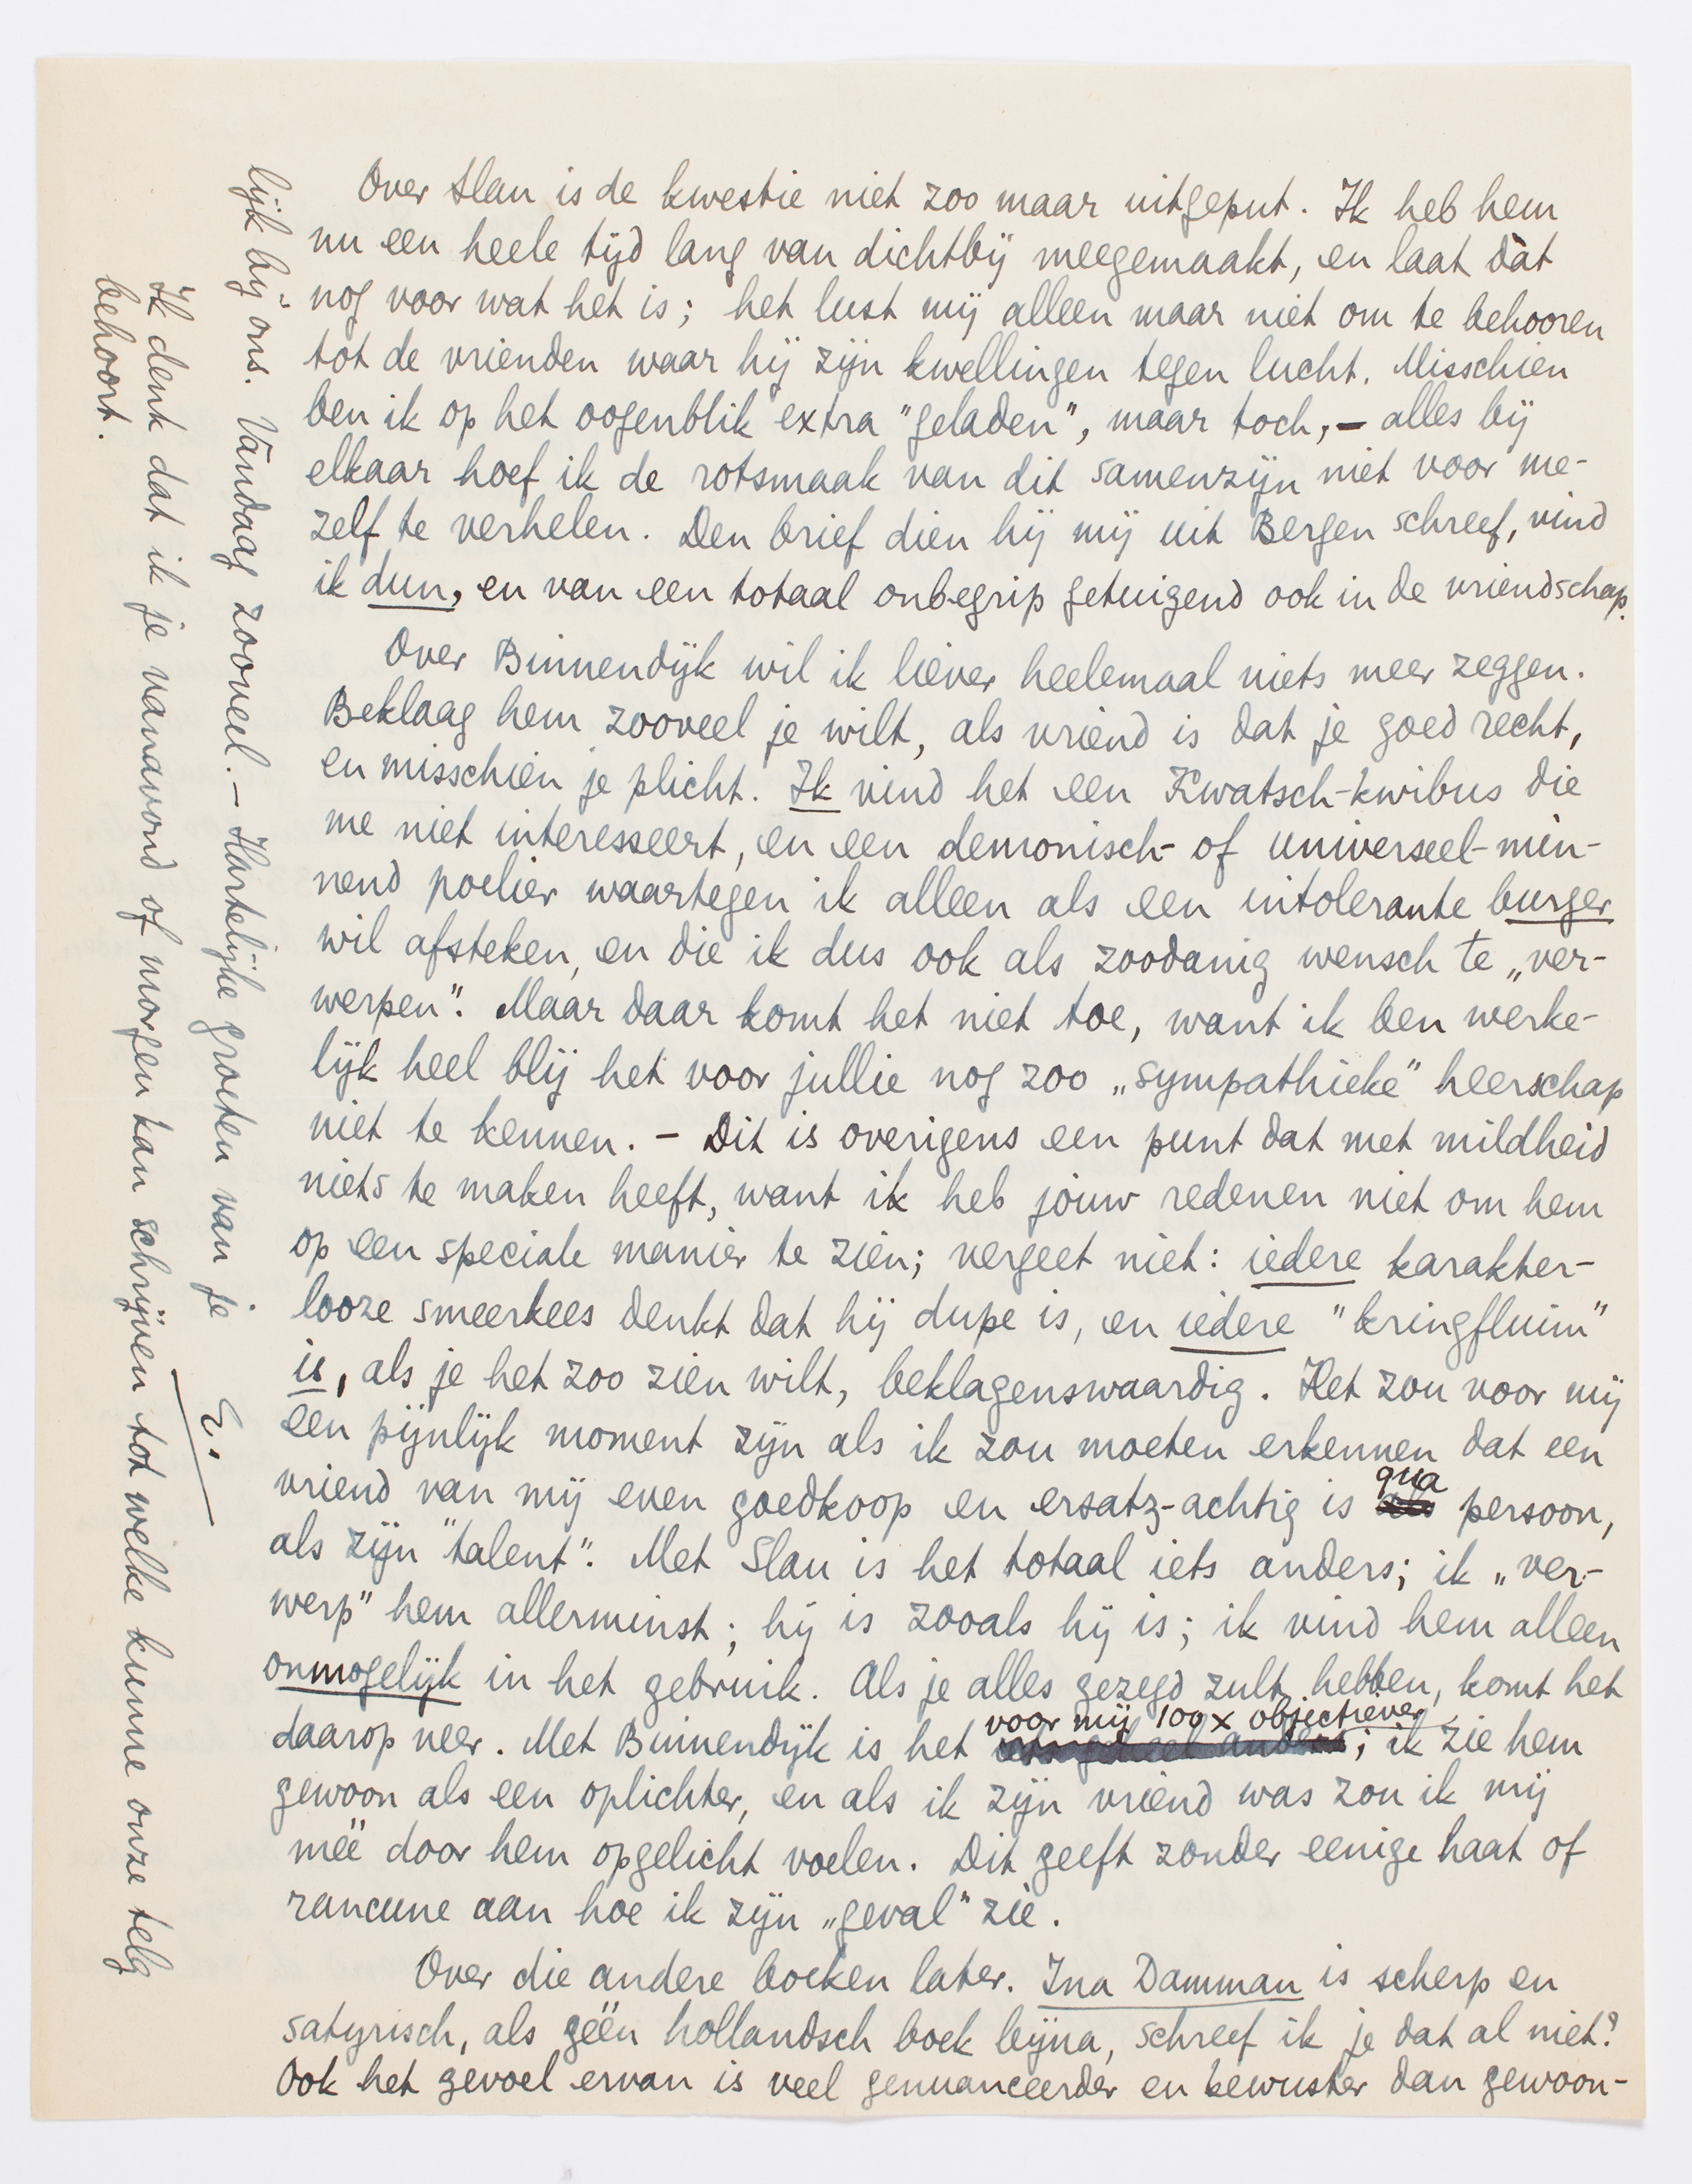 Over Slau is de kwestie niet zoo maar uitgeput. Ik heb hem
nu een heele tijd lang van dichtbij meegemaakt, en laat dàt
nog voor wat het is; het lust mij alleen maar niet om te behooren
tot de vrienden waar hij zijn kwellingen tegen lucht. Misschien
ben ik op het oogenblik extra "geladen", maar toch, – alles bij
elkaar hoef ik de rotsmaak van dit samenzijn niet voor me-
zelf te verhelen. Den brief dien hij mij uit Bergen schreef, vind
ik dun, en van een totaal onbegrip getuigend ook in de vriendschap.
Over Binnendijk wil ik liever heelemaal niets meer zeggen.
Beklaag hem zooveel je wilt, als vriend is dat je goed recht,
en misschien je plicht. Ik vind het een Kwatsch-kwibus die
me niet interesseert, en een demonisch- of universeel-min-
nend poelier waartegen ik alleen als een intolerante burger
wil afsteken, en die ik dus ook als zoodanig wensch te „ver-
werpen". Maar daar komt het niet toe, want ik ben werke-
lijk heel blij het voor jullie nog zoo „sympathieke" heerschap
niet te kennen. – Dit is overigens een punt dat met mildheid
niets te maken heeft, want ik heb jòuw redenen niet om hem
op een speciale manier te zien; vergeet niet: iedere karakter-
looze smeerkees denkt dat hij dupe is, en iedere "kringfluim"
is, als je het zoo zien wilt, beklagenswaardig. Het zou voor mij
een pijnlijk moment zijn als ik zou moeten erkennen dat een
vriend van mij even goedkoop en ersatz-achtig is qua persoon,
als zijn "talent". Met Slau is het totaal iets anders; ik „ver-
werp" hem allerminst; hij is zooals hij is; ik vind hem alleen
onmogelijk in het gebruik. Als je alles gezegd zult hebben, komt het
daarop neer. Met Binnendijk is het voor mij 100 x objectiever; ik zie hem
gewoon als een oplichter, en als ik zijn vriend was zou ik mij
méé door hem opgelicht voelen. Dit geeft zonder eenige haat of
rancune aan hoe ik zijn „geval" zie.
Over die andere boeken later. Ina Damman is scherp en
satyrisch, als géén hollandsch boek bijna, schreef ik je dat al niet?
Ook het gevoel ervan is veel genuanceerder en bewuster dan gewoon-
lijk bij ons. Vandaag zooveel. – Hartelijke groeten van je
E.
Ik denk dat ik je vanavond of morgen kan schrijven tot welke kunne onze telg
behoort.